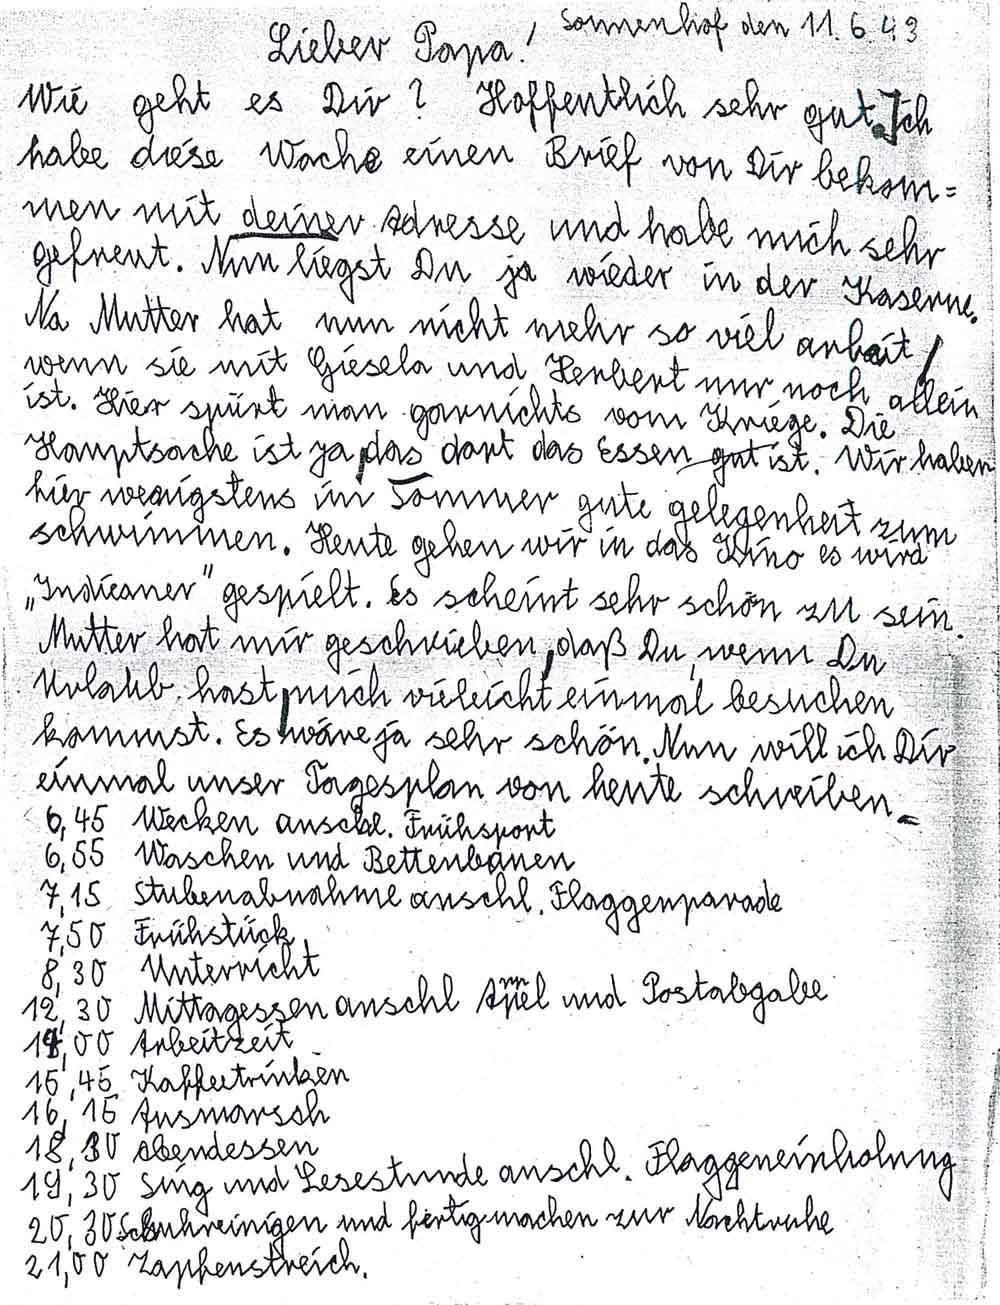 Sonnenhof den 11.6.43
Lieber Papa!
Wie geht es Dir? Hoffentlich sehr gut. Ich
habe diese Woche einen Brief von Dir bekom=
men mit deiner Adresse und habe mich sehr
gefreut. Nun liegst Du ja wieder in der Kaserne.
Na Mutter hat nun nicht mehr so viel arbeit,
wenn sie mit Giesela und Herbert nur noch allein
ist. Hier spürt man garnichts vom Kriege. Die
Hauptsache ist ja, das dort das Essen gut ist. Wir haben
hier wenigstens im Sommer gute gelegenheit zum
schwimmen. Heute gehen wir in das Kino es wird
„Indieaner" gespielt. Es scheint sehr schön zu sein.
Mutter hat mir geschrieben, daß Du, wenn Du
Urlaub hast, mich vieleicht einmal besuchen
kommst. Es wäre ja sehr schön. Nun will ich Dir
einmal unser Tagesplan von heute schreiben.=
6,45 Wecken anschl. Frühsport
6,55 Waschen und Bettenbauen
7,15 Stubenabnahme anschl. Flaggenparade
7,50 Frühstück
8,30 Unterricht
12,30 Mittagessen anschl und Postabgabe
14,00 Arbeitzeit
15,45 Kaffeetrinken
16,15 Ausmarsch
18,30 abendessen
19,30 Sing und Lesestunde anschl. Flaggeneinholung
20,30 Schuhreinigen und fertigmachen zur Nachtruhe
21,00 Zapfenstreich.